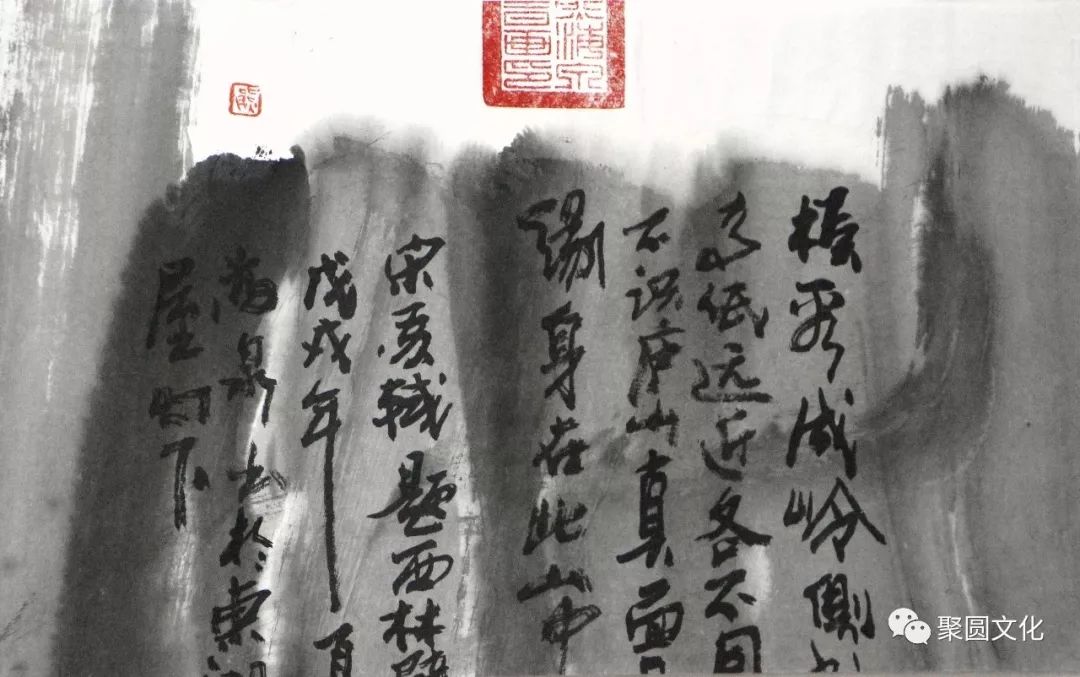 横看成岭侧
高低远近各不同
不识庐山真面
缘身在此山中
宋苏轼题西林壁
戊戌年
海泉书於東
屋灯下
熊
聚圆文化